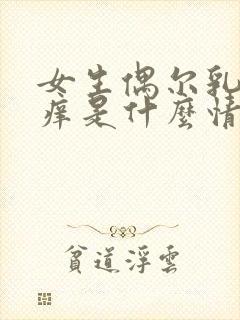 女生偶尔乳
痒是什麼情
貧道浮雲